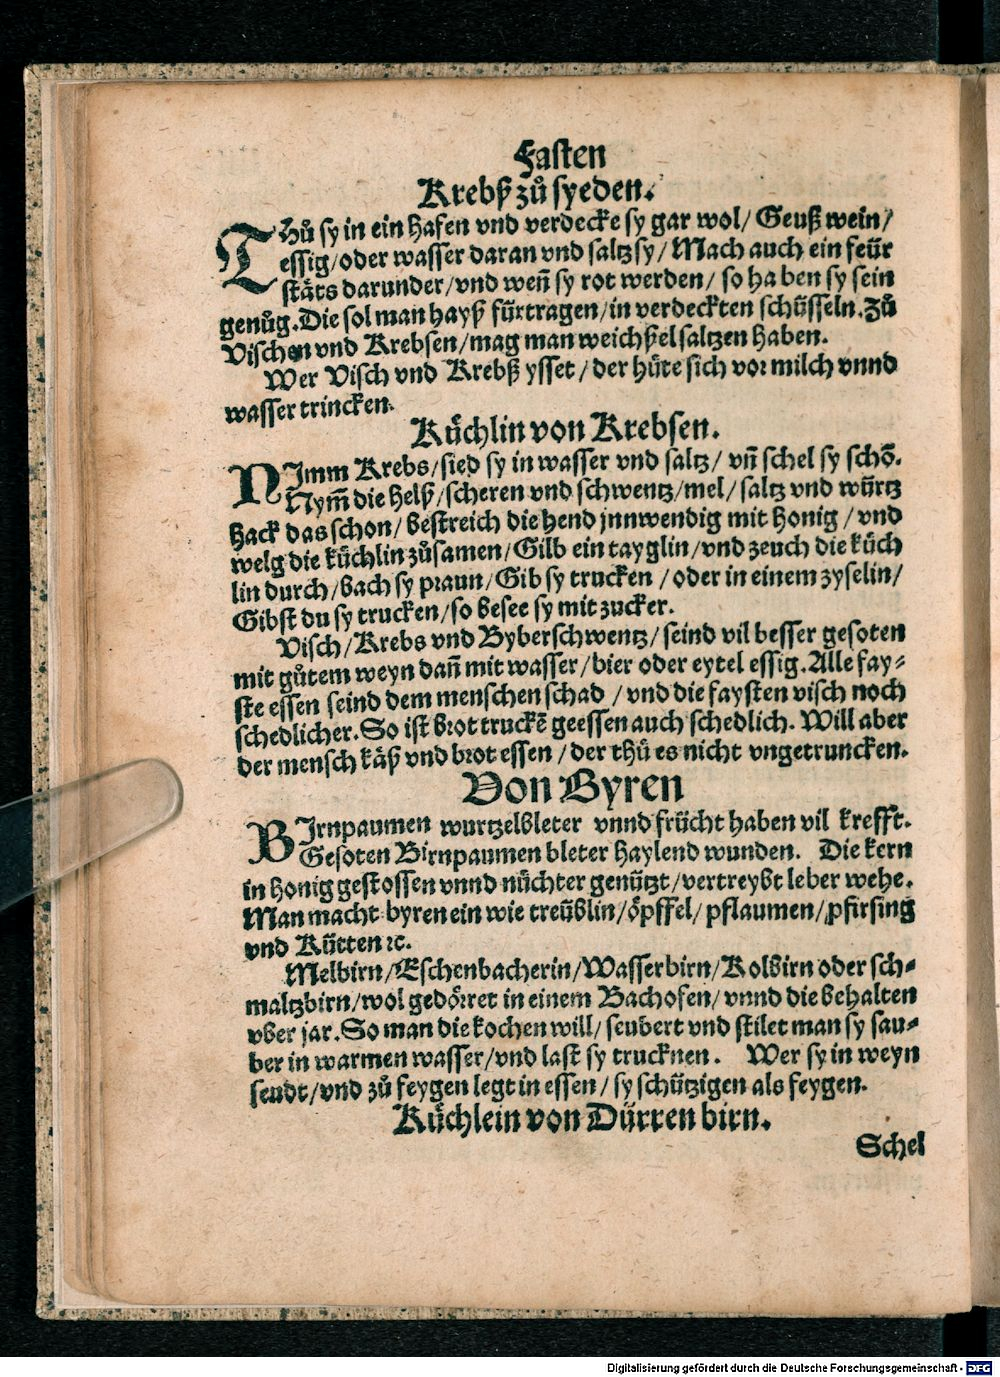 Fasten
Krebß zů syeden.
THů sy in ein hafen vnd verdecke sy gar wol/ Geuß wein/
essig/oder wasser daran vnd saltz sy/ Mach auch ein feür
stäts darunder/vnd weñ sy rot werden/ so haben sy sein
genůg. Die sol man hayß fürtragen/in verdeckten schüsseln. Zů
Vischen vnd Krebsen/mag man weichßelsaltzen haben.
Wer Visch vnd Krebß ysset/ der hüte sich vor milch vnnd
wasser trincken.
Küchlin von Krebsen.
NImm Krebs/sied sy in wasser vnd saltz/ vñ schel sy schō.
Nym̃ die helß/scheren vnd schwentz/mel/ saltz vnd würtz
hack das schon/ bestreich die hend jnnwendig mit honig/ vnd
welg die küchlin zůsamen/ Gilb ein tayglin/vnd zeuch die küch
lin durch/bach sy praun/ Gib sy trucken/ oder in einem zyselin/
Gibst du sy trucken/so besee sy mit zucker.
Visch/Krebs vnd Byberschwentz/ seind vil besser gesoten
mit gůtem weyn dañ mit wasser/bier oder eytel essig. Alle fay⸗
ste essen seind dem menschen schad/ vnd die faysten visch noch
schedlicher. So ist brot truckē geessen auch schedlich. Will aber
der mensch käß vnd brot essen/ der thü es nicht vngetruncken.
Von Byren
BIrnpaumen wurtzelbleter vnnd frücht haben vil krefft.
Gesoten Birnpaumen bleter haylend wunden. Die kern
in honig gestossen vnnd nüchter genützt/vertreybt leber wehe.
Man macht byren ein wie treüblin/öpffel/ pflaumen/pfirsing
vnd Kütten ꝛc.
Melbirn/Eschenbacherin/Wasserbirn/Kolbirn oder sch⸗
maltzbirn/wol gedörret in einem Bachofen/ vnnd die behalten
vber jar. So man die kochen will/ seubert vnd stilet man sy sau⸗
ber in warmen wasser/vnd last sy trucknen. Wer sy in weyn
seudt/vnd zů feygen legt in essen/ sy schützigen als feygen.
Küchlein von Dürren birn.
Schel
Digitalisierung gefördert durch die Deutsche Forschungsgemeinschaft - DFG